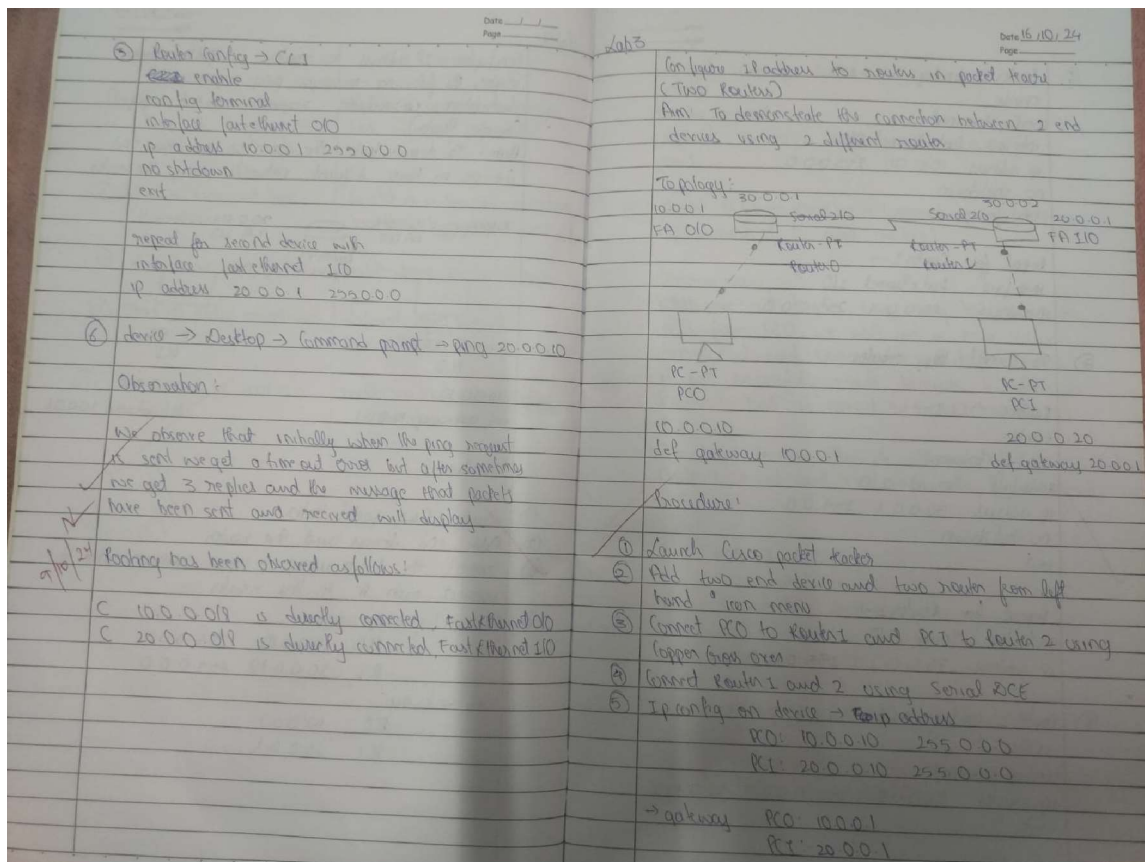 Date __/__/__
Page
⑤ Router Config → CLI
enable
config terminal
interface fastethernet 0/0
ip address 10.0.0.1 255.0.0.0
no shtdown
exit
repeat for second device with
interface fastethernet 1/0
ip address 20.0.0.1 255.0.0.0
⑥ device → Desktop → Command prompt → ping 20.0.0.10
Observation:
We observe that initially when the ping request
is sent we get a time out error but after sometimes
we get 3 replies and the message that packets
have been sent and recived will display
9/10/24
has been observed as follows:
C 10.0.0.0/8 is directly connected, FastEthernet 0/0
C 20.0.0.0/8 is directly connected, FastEthernet 1/0
Lab 3
Date 16/10/24
Page
Configure IP address to routers in packet tracer
(Two Routers)
Aim To demonstrate the connection between 2 end
devices using 2 different router.
Topology:
30.0.0.1 30.0.0.2
10.0.0.1 Serial 2/0 Serial 2/0 20.0.0.1
FA 0/0 FA 1/0
Router-PT Router-PT
Router0 Router1
PC-PT PC-PT
PC0 PC1
10.0.0.10 20.0.0.20
def gateway 10.0.0.1 def gateway 20.0.0.1
Procedure:
① Launch Cisco packet tracker
② Add two end device and two router from left
hand icon menu
③ Connect PC0 to Router1 and PC1 to Router 2 using
Copper Cross over
④ Connect Router 1 and 2 using Serial DCE
⑤ Ip config on device → ip address
PC0: 10.0.0.10 255.0.0.0
PC1: 20.0.0.10 255.0.0.0
→ gateway PC0: 10.0.0.1
PC1: 20.0.0.1